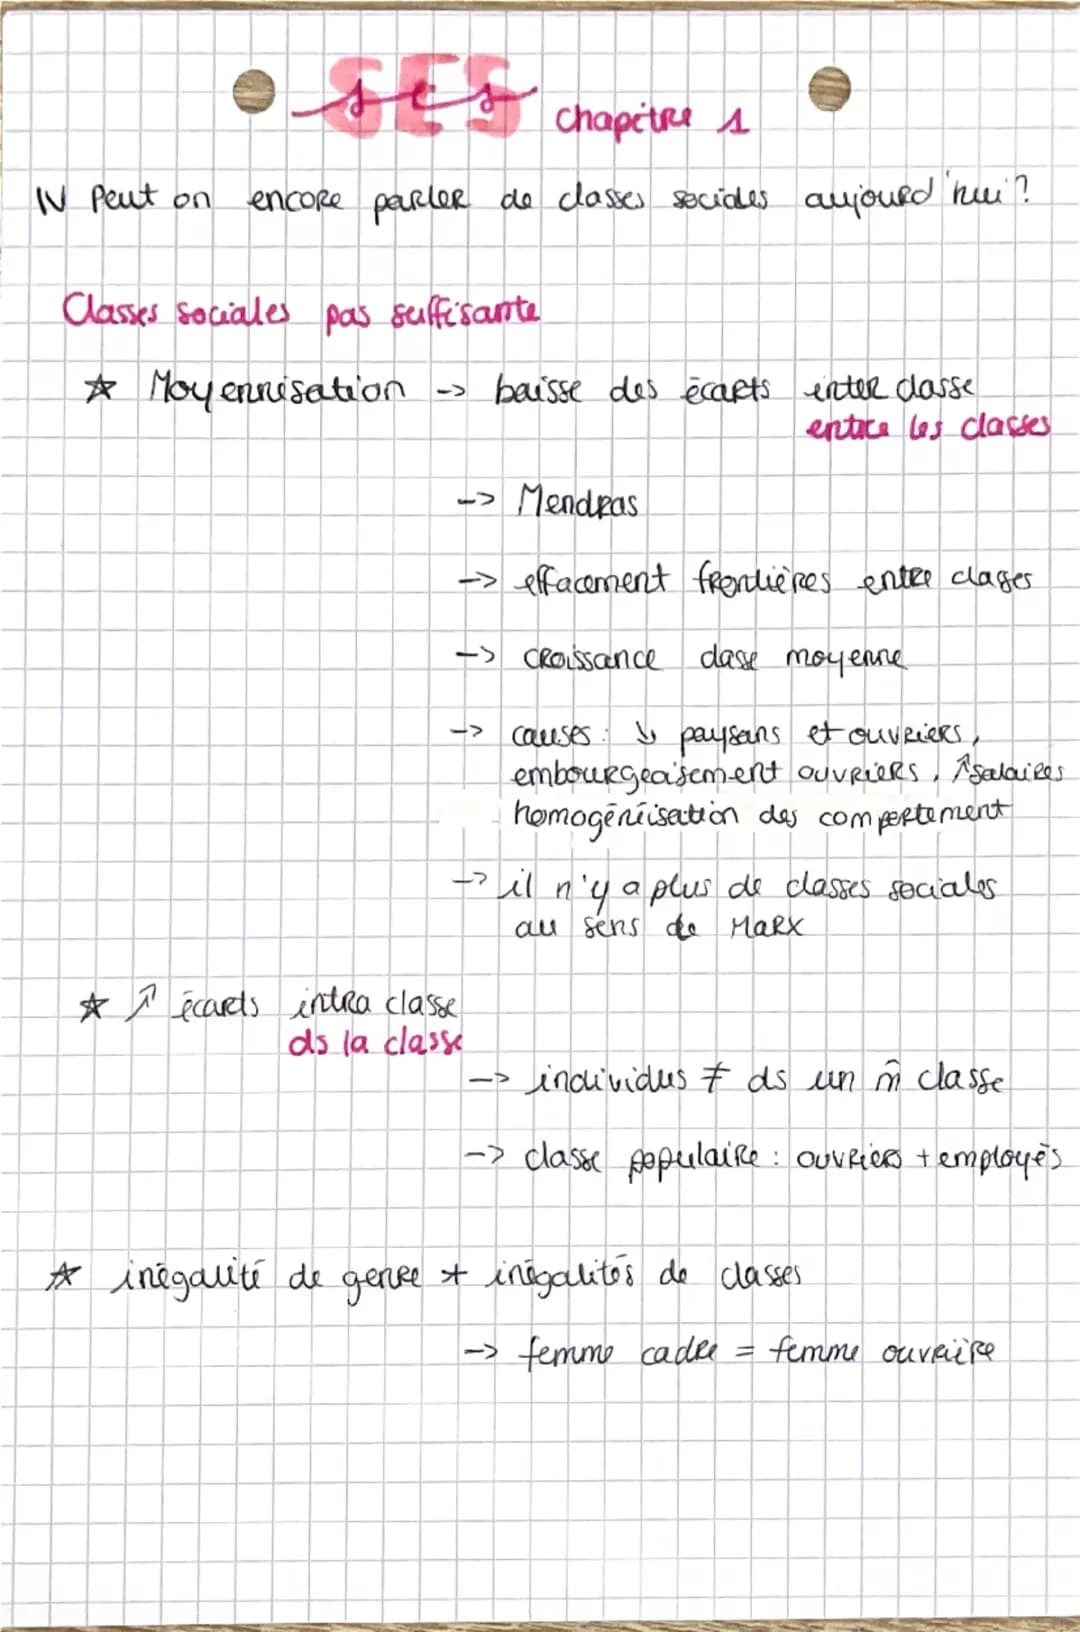 SES
ses chapitre 1
IV Peut on encore parler de classes sociales aujourd'hui ?
Classes sociales pas suffisante
☆ Moyennisation -> baisse des écarts inter classe
entre les classes
-> Mendras
-> effacement frontières entre classes
-> croissance classe moyenne
-> causes : ↘ paysans et ouvriers,
embourgeaisement ouvriers, ↗ salaires
homogénéisation des comportement
-> il n'y a plus de classes sociales
au sens de Marx
☆ ↗ écarts intra classe
ds la classe
-> individus ≠ ds un m̂ classe
-> classe populaire : ouvriers + employés
☆ inégalité de genre + inégalités de classes
-> femme cadre = femme ouvrière